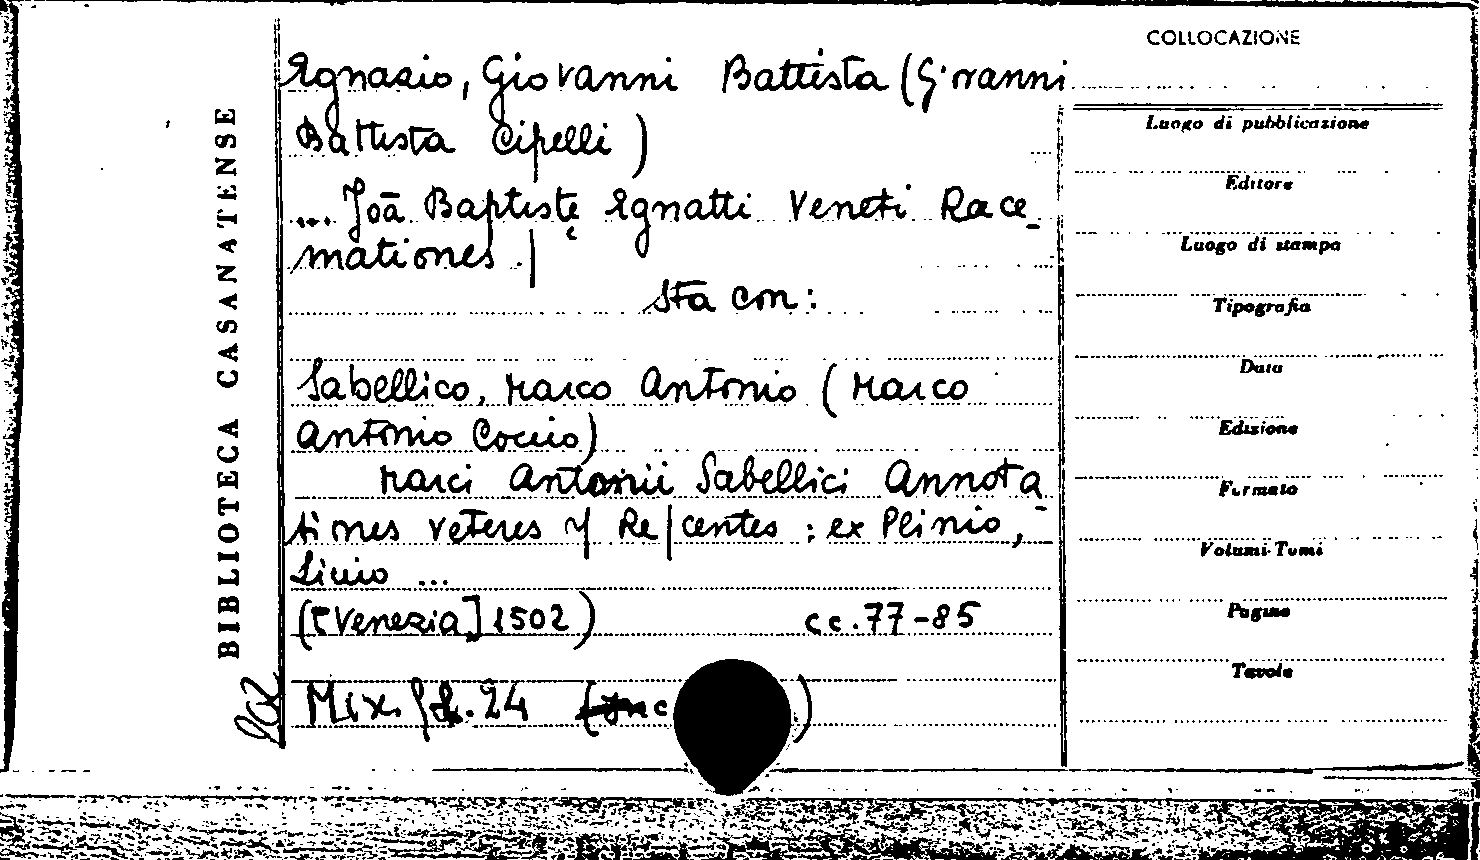 COLLOCAZIONE
Egnazio, Giovanni Battista (Giovanni
Battista Cipelli)
... Joā Baptistę Egnatti Veneti Race_
mationes. |
Sta con:
Sabellico, Marco Antonio (Marco
Antonio Coccio)
Marci Antonii Sabellici Annota_
tiones veteres & Re|centes : ex Plinio,
Livio ...
([Venezia] 1502) cc. 77-85
Mix. 24
BIBLIOTECA CASANATENSE
Luogo di pubblicazione
Editore
Luogo di stampa
Tipografia
Data
Edizione
Formato
Volumi-Tomi
Pagine
Tavole